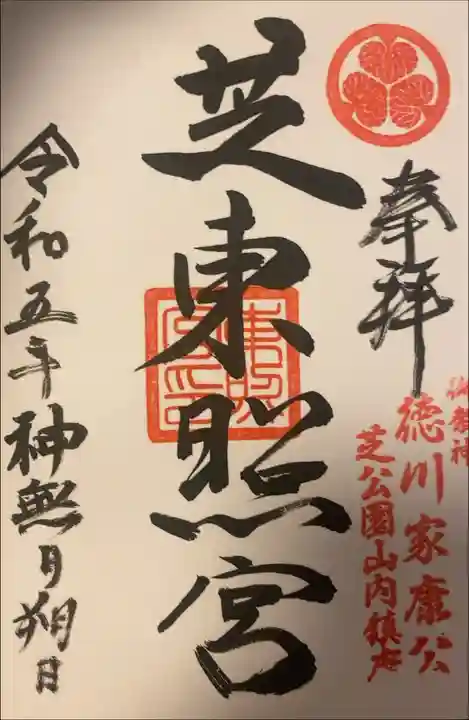 奉拝
御祭神
徳川家康公
芝公園山内鎮座
芝東照宮
東照宮印
令和五年神無月朔日